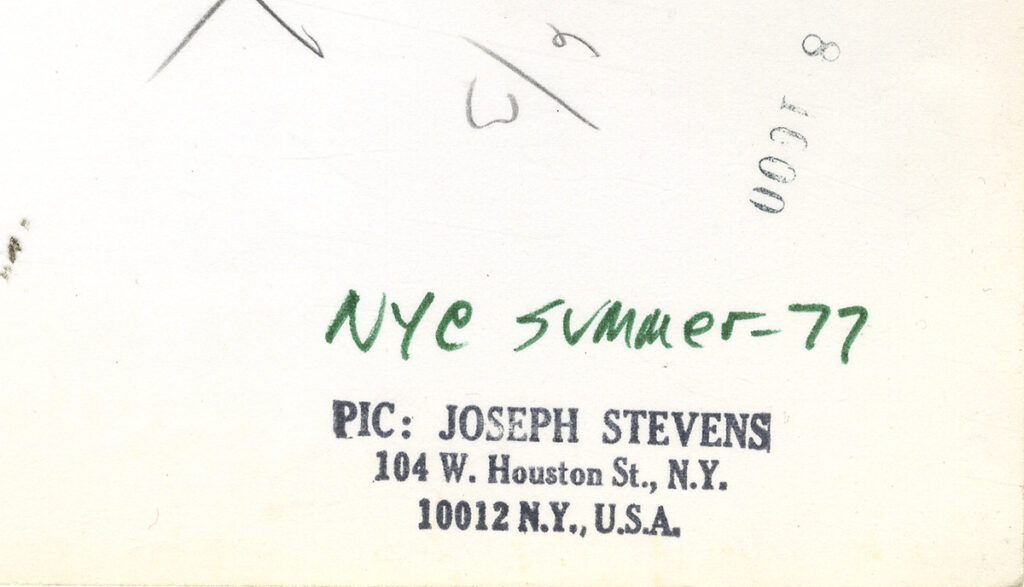 NYC Summer-77
PIC: JOSEPH STEVENS
104 W. Houston St., N.Y.
10012 N.Y., U.S.A.